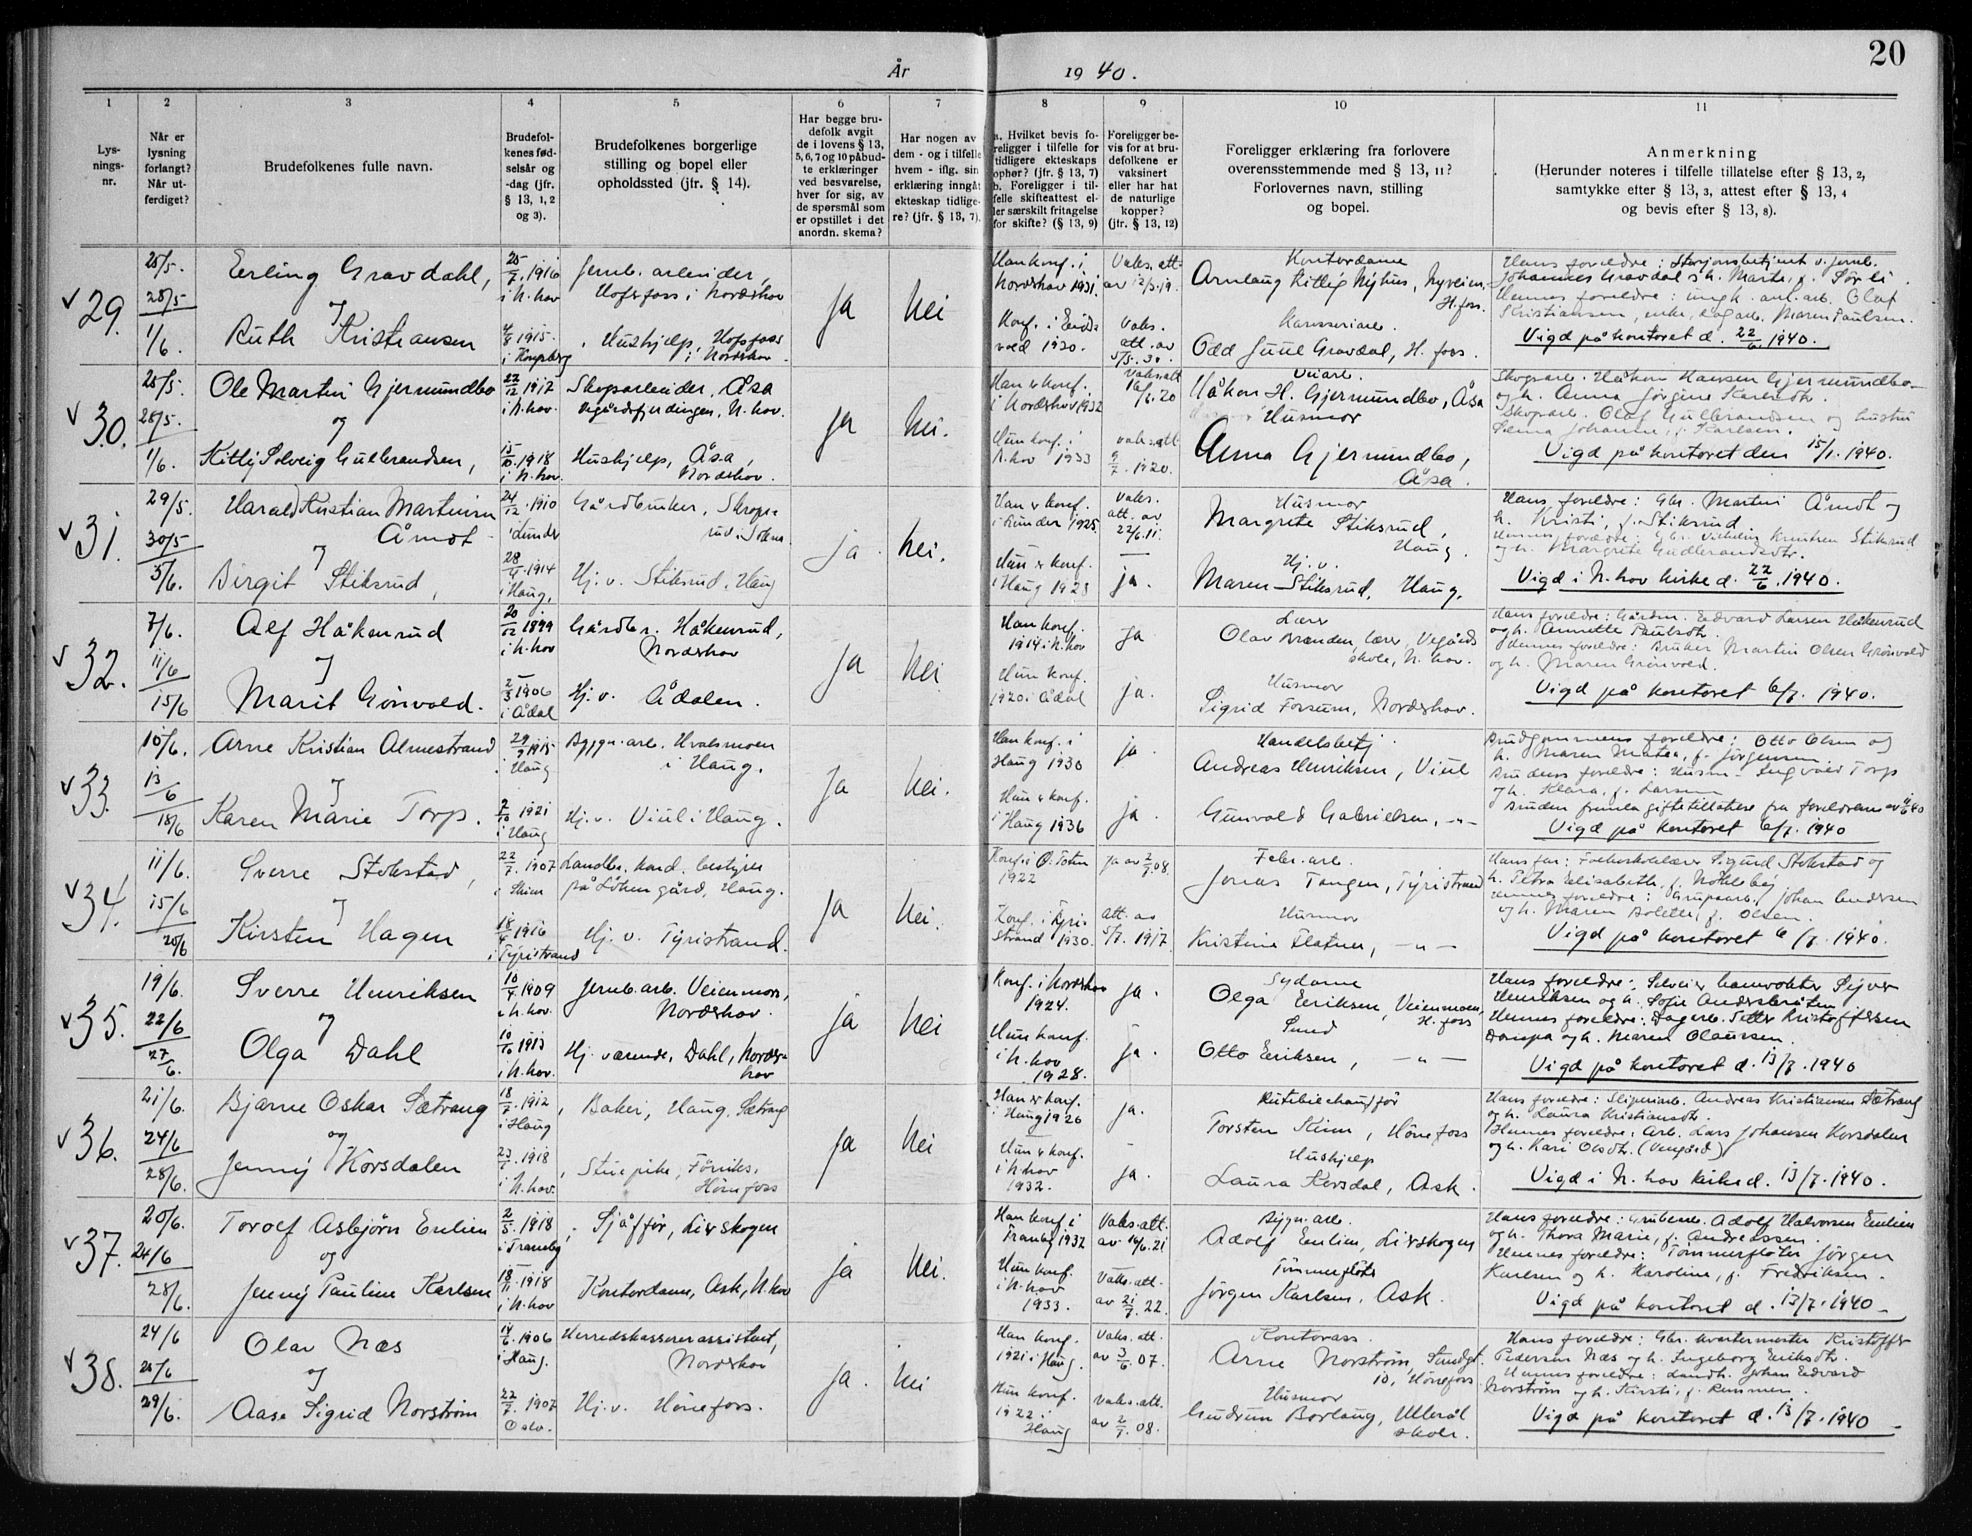 År 1940.
20
1 2 3 4 5 6 7 8 9 10 11
Lysningsnr.
Når er lysning forlangt? Når utferdiget?
Brudefolkenes fulle navn.
Brudefolkenes fødselsår og -dag (jfr. § 13, 1, 2 og 3).
Brudefolkenes borgerlige stilling og bopel eller opholdssted (jfr. § 14).
Har begge brudefolk avgitt de i lovens § 13, 5, 6, 7 og 10 påbudte erklæringer ved besvarelse, hver for sig, av de spørsmål som er opstillet i det anordn. skema?
Har nogen av dem - og i tilfelle hvem - iflg. sin erklæring inngått ekteskap tidligere? (jfr. § 13, 7).
a. Hvilket bevis foreligger i tilfelle for tidligere ekteskaps ophør? (jfr. § 13, 7) b. Foreligger i tilfelle skifteattest eller særskilt fritagelse for skifte? (§ 13, 9)
Foreligger bevis for at brudefolkene er vaksinert eller har hat de naturlige kopper? (jfr. § 13, 12)
Foreligger erklæring fra forlovere overensstemmende med § 13, 11? Forlovernes navn, stilling og bopel.
Anmerkning
(Herunder noteres i tilfelle tillatelse efter § 13, 2, samtykke efter § 13, 3, attest efter § 13, 4 og bevis efter § 13, 8).
29.
25/5. 28/5 1/6.
Erling Gravdahl,
og
Ruth Kristiansen
25/7. 1916 i N.hov
1915. i Kongsberg
Jernb. arbeider, Hofsfoss i Norderhov
Hushjelp, Hofsfoss i Norderhov.
Ja
Nei
Han konf. i Norderhov 1931.
Konf. i Eidsvold 1930.
Vaks. att. av 12/3.19.
Vaks. att. av 5/5.30.
Kontordame
Nyhus, Nyveien, H.foss.
Odd Juul Gravdal, H.foss.
Hans foreldre:
Johannes Gravdal og h. Marte, f. Sørli.
Hennes foreldre: Olaf Kristiansen, Maren Paulsen.
Vigd på kontoret d. 22/6. 1940.
30.
25/5. 28/5. 1/6.
Ole Martin Gjermundbo
og
Kitty Solveig Gulbrandsen,
22/12 1917 i N.hov.
15/10. 1918 i N.hov.
Skogsarbeider, Åsa Vegårdsfjerdingen, N.hov.
Hushjelp, Åsa, Norderhov.
Ja
Nei.
Han er konf. i Norderhov 1932
Hun konf. i N.hov 1933
Vaks. att 16/6.20
Vaks. att. 9/7. 1920.
Veiarb.
Håkon H. Gjermundbo, Åsa
Husmor
Anna Gjermundbo, Åsa.
Skogsarb. Håkon Hansen Gjermundbo og h. Anna Jørgine Karlsdtr.
Skogsarb. Olaf Gulbrandsen og hustru Johanne, f. Karlsen.
Vigd på kontoret den 15/1. 1940.
31.
29/5. 30/5 3/6.
Harald Kristian Martinsen Åmot
og
Birgit Stiksrud,
24/12. 1910 i Lunder
28/9. 1914 i Haug.
Gårdbruker, i Soknа
Hj. v. Stiksrud, Haug
ja.
Nei.
Han er konf. i Lunder 1925.
Hun er konf. i Haug 1928
Vaks. att. av 22/6.11.
ja.
Husmor
Margrete Stiksrud, Haug.
Hj. v.
Maren Stiksrud, Haug.
Hans foreldre: Gbr. Martin Åmot og h. Kristi, f. Stiksrud.
Hennes foreldre: Gbr. Knutsen Stiksrud og h. Margrete Gudbrandsdtr.
Vigd i N.hov kirke d. 22/6. 1940.
32.
7/6. 11/6 15/6
Alf Håkenrud
og
Marit Grönvold.
20/12 1899 i N.hov
2/3 1906 i Ådal
Gårdbr. Håkenrud, Norderhov
Hj. v. Ådalen.
Ja
Nei
Han konf. 1914 i N.hov
Hun konf. 1920 i Ådal
Ja
ja.
Lærer
Olav Brænden, lærer, Vegårds skole, N.hov.
Husmor
Sigrid Forsum, Norderhov.
Hans foreldre: Gårdbr. Edvard Larsen Håkenrud og h. Annette Paulsdtr.
Hennes foreldre: Bruker Martin Olsen Grönvold og h. Maren Grönvold.
Vigd på kontoret 6/7. 1940.
33.
10/6. 13/6 18/6
Arne Kristian Almestrand
og
Karen Marie Torp.
29/9 1915 i Haug
7/10 1921 i Haug
Bygn. arb. Hvalsmoen i Haug.
Hj. v. Viul i Haug.
Ja
Nei.
Han konf. i Haug 1930
Hun er konf. i Haug 1936
ja.
ja.
Handelsbetj.
Andreas Henriksen, Viul
Gunvald Gabrielsen, -"-
Brudgommens foreldre: Otto Olsen og h. Maren Matea, f. Jørgensen
Brudens foreldre: Husm. Ingvald Torp og h. Klara, f. Larsen
Bruden fremla giftetillatelse fra foreldrene
Vigd på kontoret 6/7. 1940
34.
11/6. 15/6 20/6
Sverre Stokstad,
og
Kirsten Hagen
22/7. 1907 i Skien
18/4 1916 i Tyristrand
Landbr. kand. bestyrer på Löken gård, Haug.
Hj. v. Tyristrand.
Ja
Nei.
Konf. i Ø. Toten 1922
Konf. i Tyristrand 1930.
Ja av 2/7 08.
att. av 5/7. 1917.
Fabr. arb.
Jonas Tangen, Tyristrand
Husmor
Kristine Flatner, -"-
Hans far: Sigurd Stokstad og h. Petra Elisabeth, f.
Hennes foreldre: Johan Andersen og h. Maren Bolette, f. Olsen.
Vigd på kontoret 6/7. 1940.
35.
19/6. 22/6 27/6.
Sverre Henriksen
og
Olga Dahl
10/4. 1909 i N.hov.
10/10 1913 i N.hov.
Jernb. arb. Veienmoen, Norderhov.
Hj. værende, Dahl, Norderhov
Ja
Nei
Konf. i Norderhov 1924.
Hun konf. i N.hov 1928.
ja.
ja.
Sydame
Olga Eriksen, Veienmoen, H.foss
Smed
Otto Eriksen, -"-
Hans foreldre: banevokter Sijver Henriksen og h. Sofie Andersbråten
Hennes foreldre: Dagarb. Petter Kristoffersen og h. Maren Olausen.
Vigd på kontoret d. 13/7. 1940
36.
21/6. 24/6 28/6.
Bjarne Oskar Sætrang
og
Jenny Korsdalen
18/7. 1912 i Haug
23/1. 1918 i N.hov.
Baker, Haug, Sætrang
Stuepike, Föniks, Hönefoss
Ja
Nei
Han er konf. i Haug 1926
Hun er konf. i N.hov 1932.
ja.
ja.
Rutebilchauffør
Torsten Skim, Hönefoss
Hushjelp
Laura Korsdal, Ask.
Hans foreldre: Sliperiarb. Andreas Kristiansen Sætrang og h. Laura Kristiansdtr.
Hennes foreldre: Arb. Lars Johansen Korsdalen og h. Kari Olsdtr. (Vengård)
Vigd i N.hov kirke d. 13/7. 1940.
37.
20/6. 24/6 28/6.
Torolf Asbjørn Enlien
og
Jenny Pauline Karlsen
2/5. 1918 i Tranby
18/11. 1918 i N.hov
Sjåffør, Lierskogen
Kontordame, Ask, N.hov
Ja
Nei.
Han konf. i Tranby 1932
Hun konf. i N.hov 1933.
Vaks. att. av 16/6. 21
Vaks. att. av 21/7. 22.
Bygn. arb.
Adolf Enlien, Lierskogen
Tömmerfløter
Jörgen Karlsen, Ask.
Hans foreldre: Grubearb. Adolf Halvorsen Enlien og h. Thora Marie, f. Andreassen.
Hennes foreldre: Tømmerfløter Jørgen Karlsen og h. Karoline, f. Fredriksen.
Vigd på kontoret d. 13/7. 1940
38.
24/6 25/6 29/6.
Olav Næs
og
Aase Sigrid Norström
14/6. 1906 i Haug.
22/7. 1907 Oslo.
Herredskassererassistent, Norderhov
Hj. v. Hönefoss.
Ja.
Nei
Han konf. 1921 i Haug
Hun konf. 1922 i Haug
Vaks. att. av 3/6. 07.
Vaks. att. av 2/7. 08.
Kontorass.
Arne Norström, Sundgt. 10, Hönefoss
Husmor
Gudrun Borlaug, Ullerål skole.
Hans foreldre: Gbr. kvartermester Kristoffer Pedersen Næs og h. Ingeborg Eriksdtr.
Hennes foreldre: Landh. Johan Edvard Norström og h. Kirsti, f. Remmen.
Vigd på kontoret d. 13/7. 1940